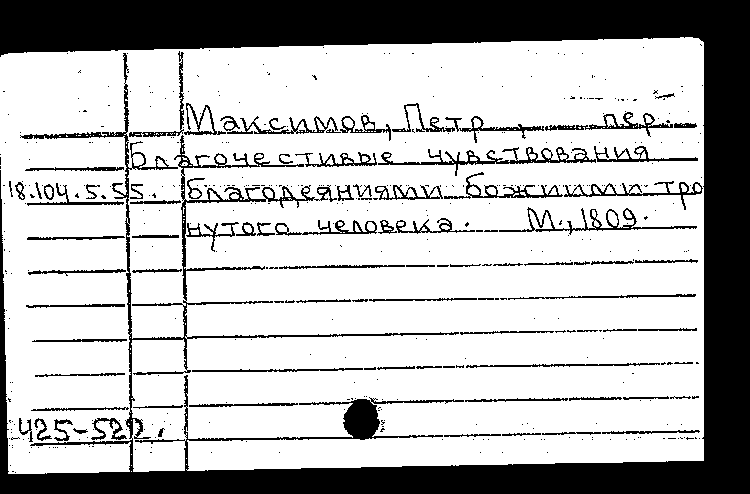 Максимов, Петр , пер.
Благочестивые чувствования
18.104.5.55. благодеяниями божиими тро
нутого человека. М., 1809.
425-522.